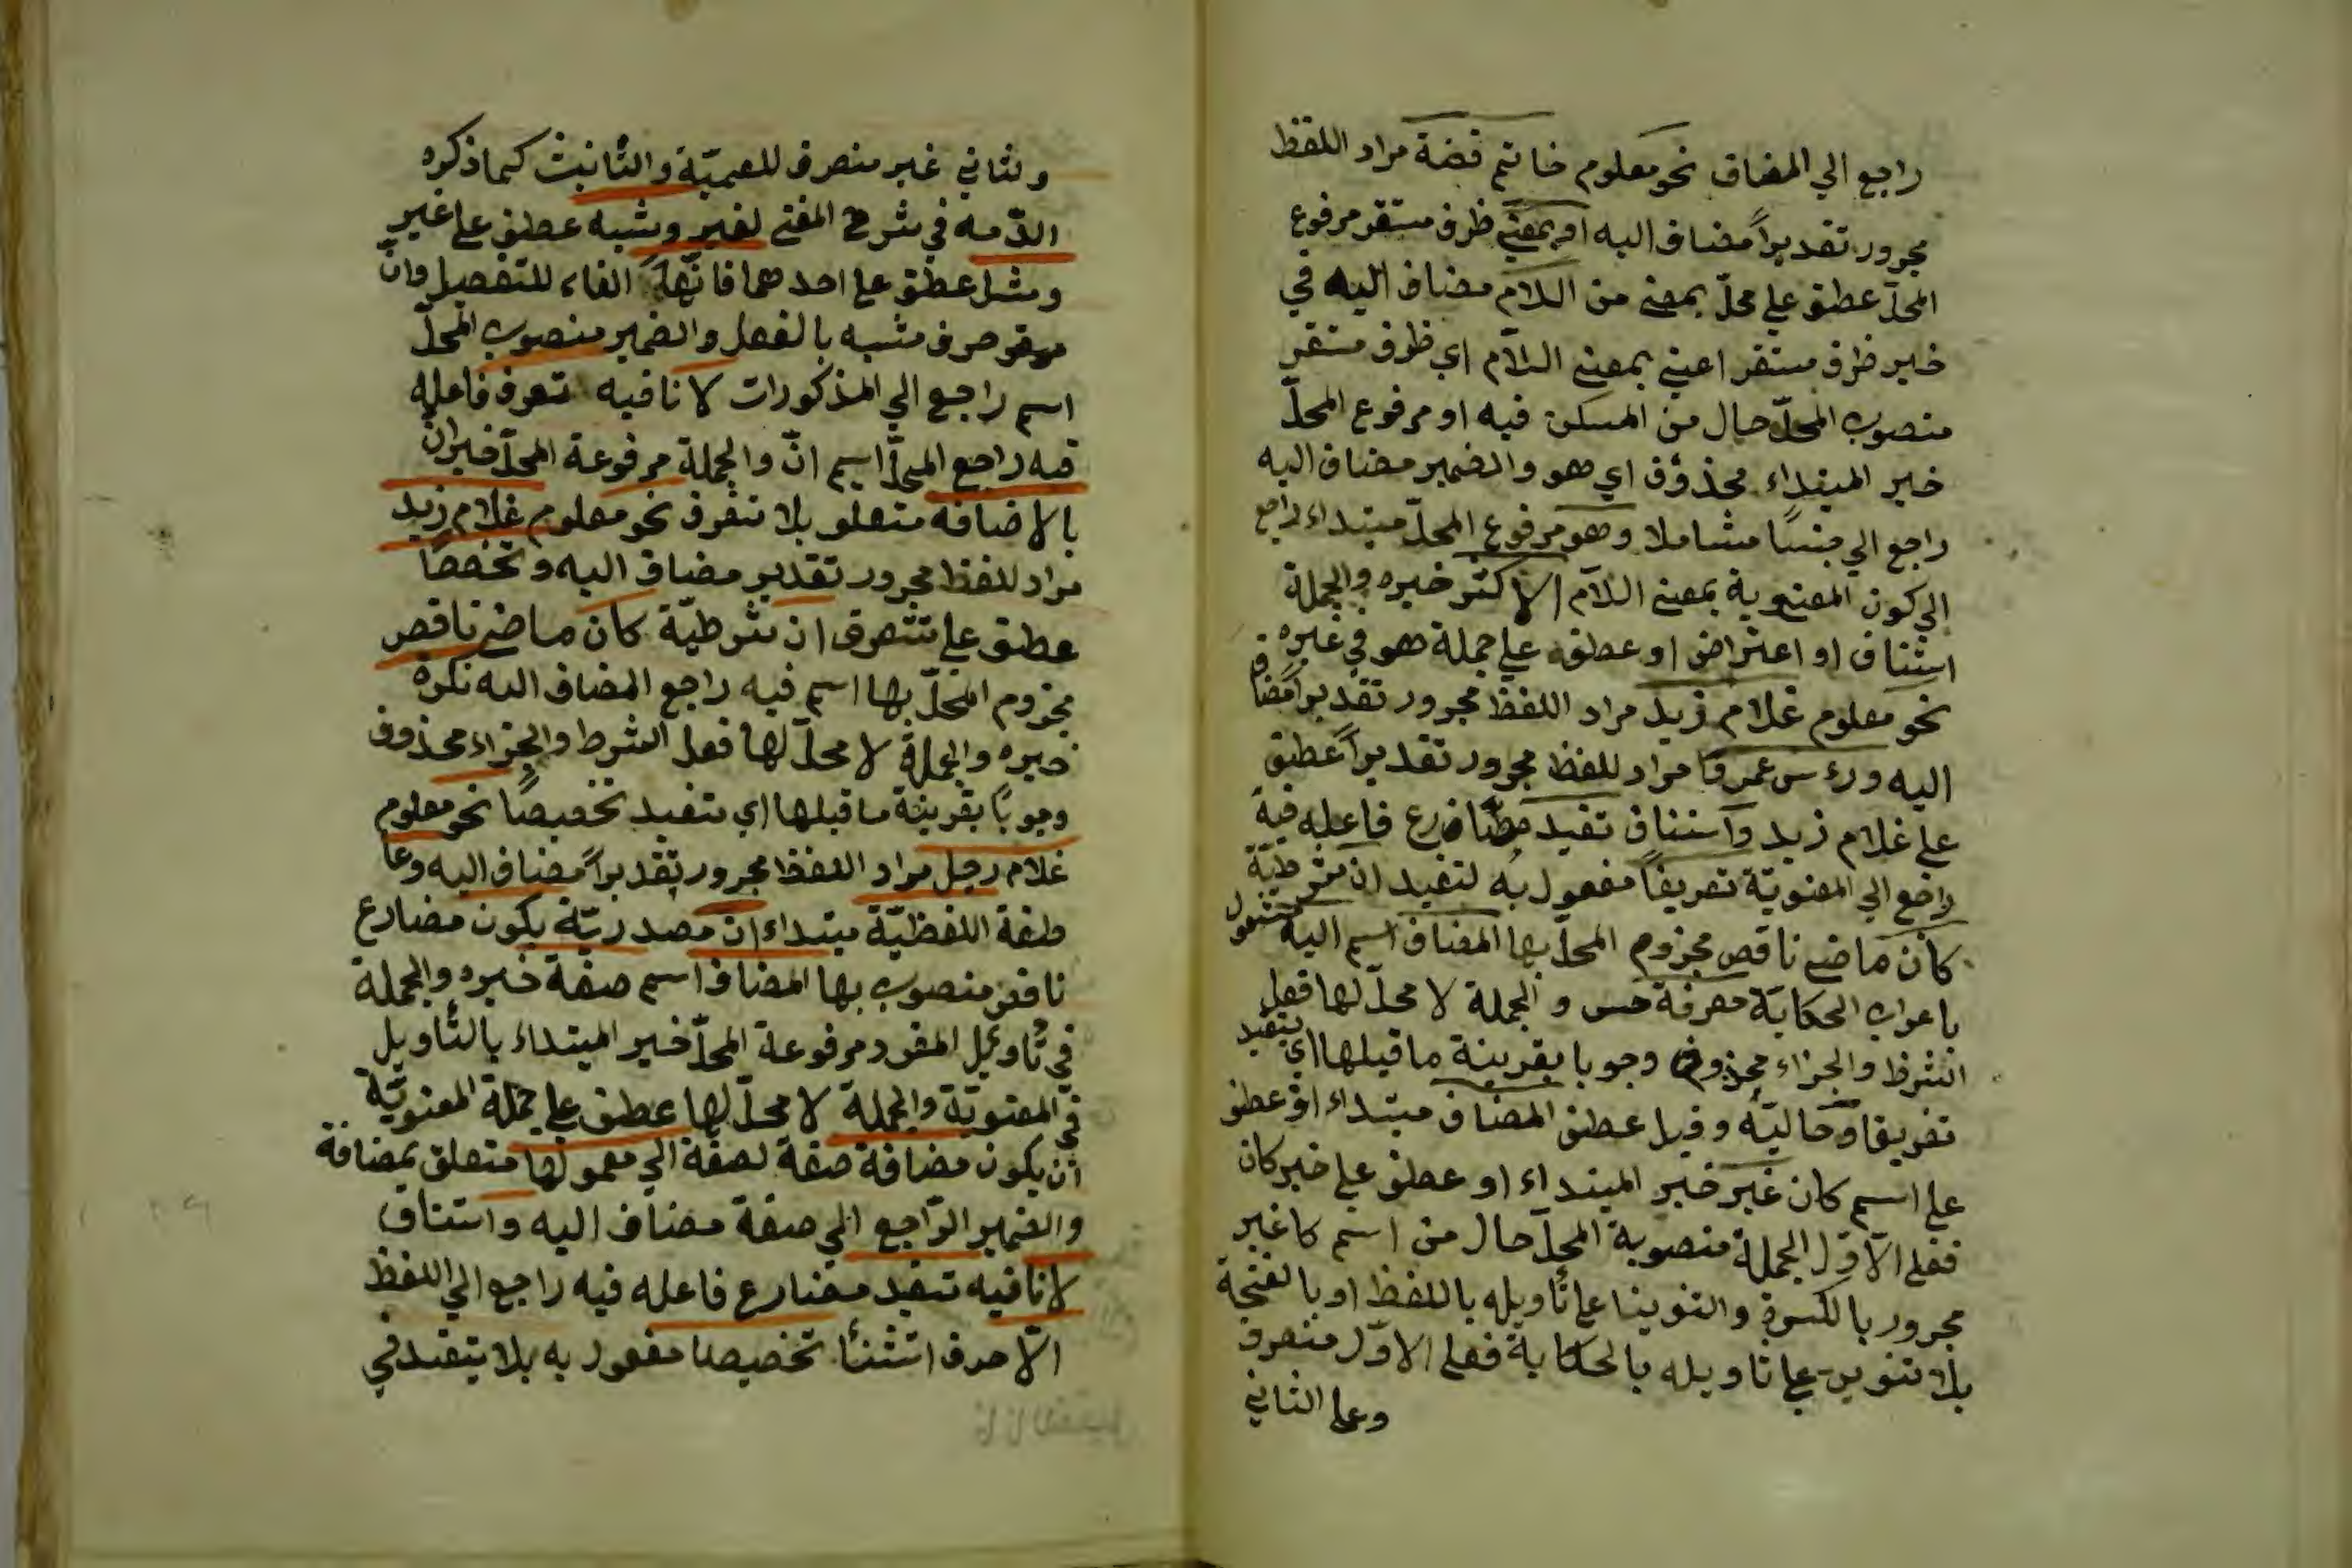 راجع الي المضاف نحو معلوم خاتم فضة مراد اللفظ
مجرور تقديراً مضاف اليه او بمعني ظرف مستقر مرفوع
المحلّ عطف علي محلّ بمعني من اللام مضاف اليه في
خبر ظرف مستقر اعني بمعني اللام اي ظرف مستقر
منصوب المحلّ حال من المسكن فيه او مرفوع المحلّ
خبر المبتداء محذوف اي هو والضمير مضاف اليه
راجع الي جنسًا شاملا وهو مرفوع المحلّ مبتداء راجع
الي كون المعنوية بمعني اللام الاكثر خبره والجملة
استناف او اعتراض او عطف علي جملة هو في غيره
نحو معلوم غلام زيد مراد اللفظ مجرور تقديراً مضاف
اليه ورءس عمرو مراد للفظ مجرور تقديراً عطف
علي غلام زيد واستناف تفيد مضارع فاعله فيه
راجع الي المعنويّة تعريفاً مفعول به لتفيد ان شرطيّة
كان ماضي ناقص مجزوم المحلّ بها المضاف اسم اليه مشغول
باعراب الحكاية معرفة خبر و الجملة لا محلّ لها فعل
الشرط والجزاء محذوف وجوبا بقرينة ما قبلها اي يتفيد
تعريفا او حاليّة وقيل عطف المضاف مبتداء او عطف
علي اسم كان غير خبر المبتداء او عطف علي خبر كان
فعلي الاوّل الجملة منصوبة المحلّ حال من اسم كا غير
مجرور بالكسرة والتنوينا علي تأويله باللفظ او بالفتحة
بلا تنوين علي تاويله بالحكاية فعلي الاوّل منصرف
وعلي الثاني
وثاني غير منصرف للعميّة والتأنيث كما ذكره
الدّمه في شرح المغني لغير وشبه عطف علي غير
ومثل عطف علي احدهما فانّها الفاء للتفصيل وانّ
حرف مشبه بالفعل والضمير منصوب المحلّ
اسم راجع الي المذكورات لا نافيه تعرف فاعله
فيه راجع المحلّ اسم انّ والجملة مرفوعة المحلّ خبر انّ
بالاضافة متعلق بلا تتعرف نحو معلوم غلام زيد
مراد للفظ مجرور تقدير مضاف اليه وتخصصا
عطف علي تتعرف ان شرطيّة كان ماضي ناقص
مجزوم المحلّ بها اسم فيه راجع المضاف اليه نكرة
خبره والجملة لا محلّ لها فعل الشرط والجزاء محذوف
وجوبًا بقرينة ما قبلها اي تتفيد تخصيصًا نحو معلوم
غلام رجل مراد اللفظ مجرور تقديراً مضاف اليه وعا
طفة اللفظيّة مبتداء ان مصدريّة يكون مضارع
ناقص منصوب بها المضاف اسم صفة خبره والجملة
في تأويل المفرد مرفوعة المحلّ خبر المبتداء بالتأويل
في المعنويّة والجملة لا محلّ لها عطف علي جملة المعنويّة
ان يكون مضافة صفة لصفة الي معمولها متعلق بمضافة
والضمير الرّاجع الي صفة مضاف اليه واستناف
لا نافيه تتفيد مضارع فاعله فيه راجع الي اللفظ
الّا حرف اتثنأ تخصيصا مفعول به بلا يتفيد في